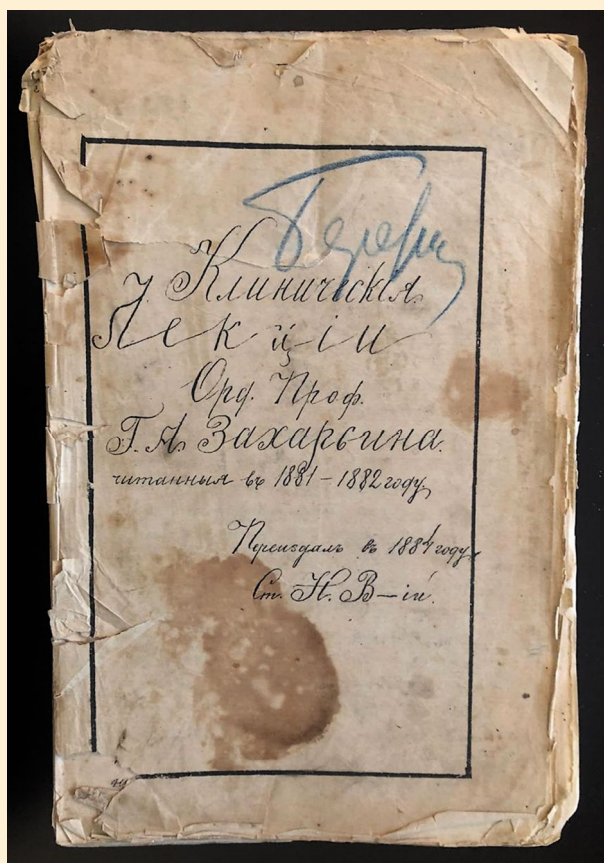 Клиническія
Лекціи
Орд. Проф.
Г. А. Захарьина.
читанныя въ 1881 – 1882 году.
Переиздалъ въ 1884 году.
Ст. Н. В—ій.